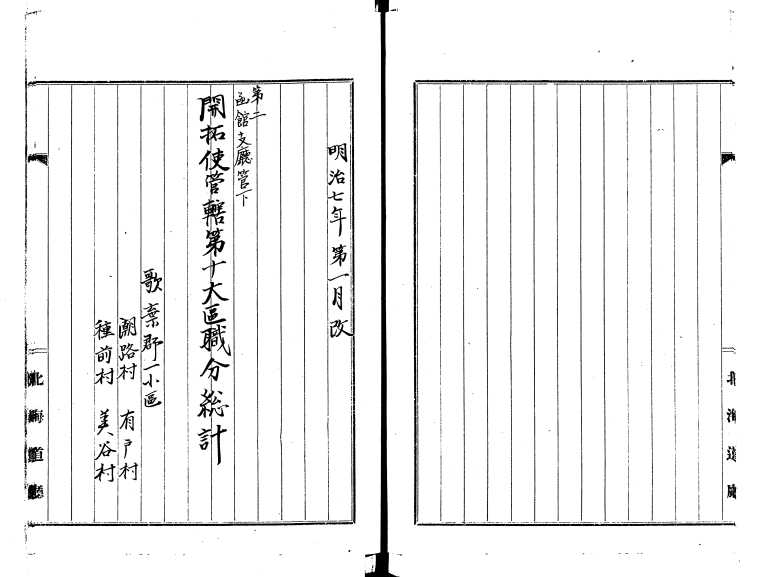 明治七年第一月改
第二
函館支廳管下
開拓使管轄第十大區職分総計
歌棄郡一小區
潮路村 有戸村
種前村 美谷村
北海道廳
北海道廳